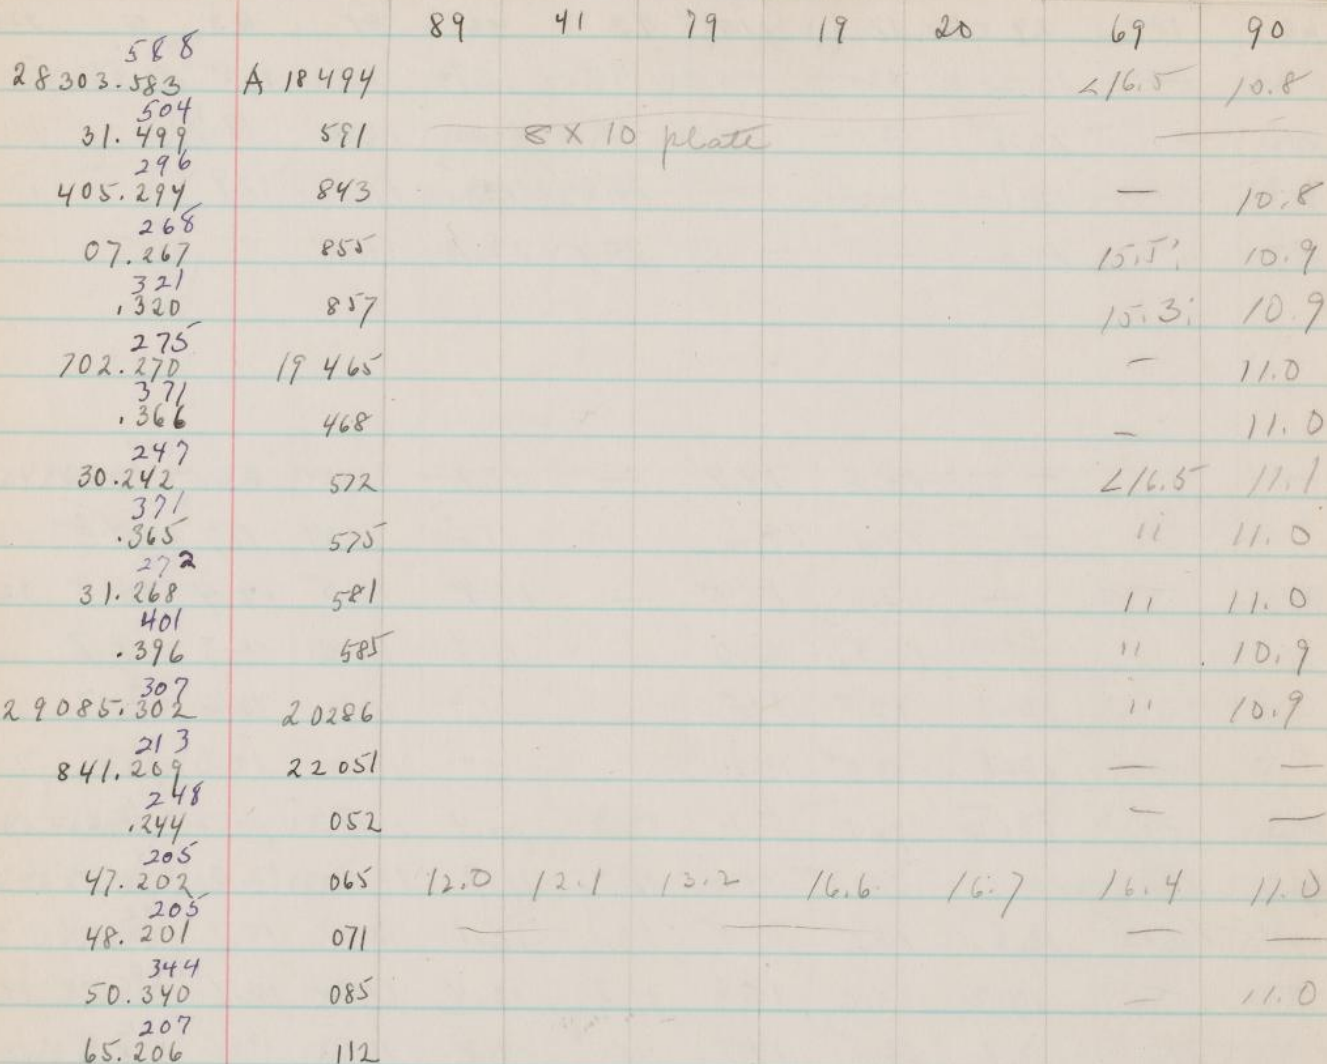 89 41 79 19 20 69 90
588
28303.583 A 18494 <16.5 10.8
504
31.499 591 8 X 10 plate —
296
405.294 843 — 10.8
268
07.267 855 15.5: 10.9
321
.320 857 15.3: 10.9
275
702.270 19 465 — 11.0
371
.366 468 — 11.0
247
30.242 572 <16.5 11.1
371
.365 575 " 11.0
272
31.268 581 " 11.0
401
.396 585 " 10.9
307
29085.302 20286 " 10.9
213
841.209 22051 — —
248
.244 052 — —
205
47.202 065 12.0 12.1 13.2 16.6 16.7 16.4 11.0
205
48.201 071 — — — —
344
50.340 085 — 11.0
207
65.206 112